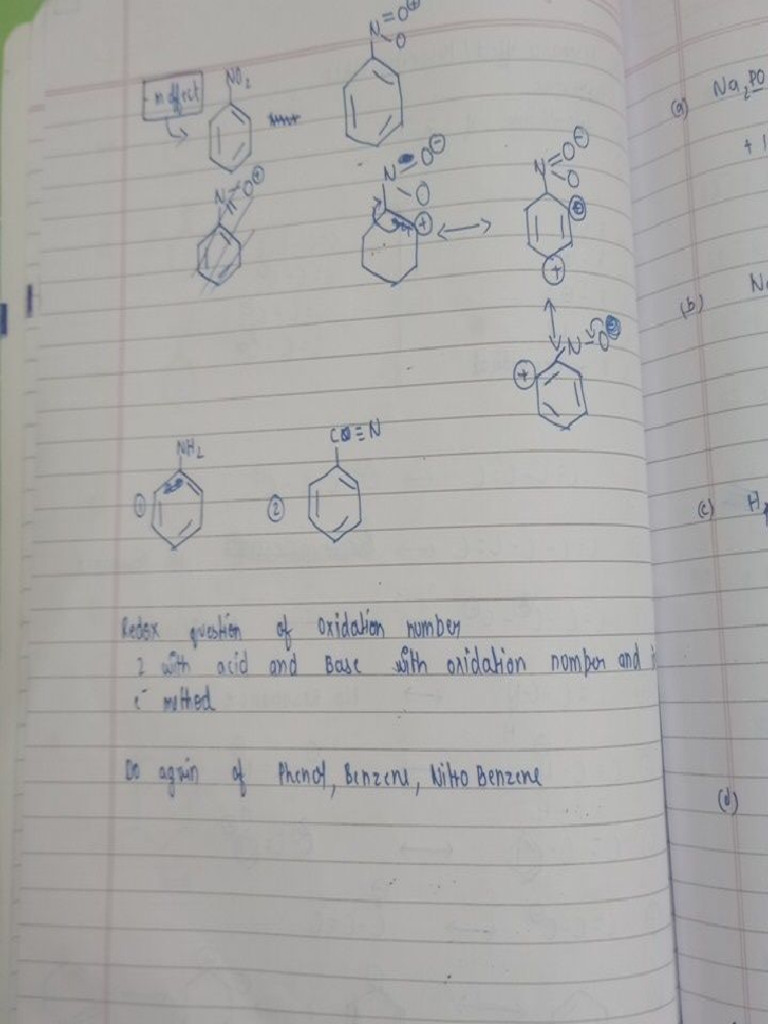 N=O⊕
O
-m effect
NO₂
(a) Na₂PO
+ 1
N=O⊖
O
⊕
N=O⊖
O
⊕
⊕
N
O⊕
(b) N
N=O
⊕
NH₂
C≡N
①
②
(c) H
Redox question of oxidation number
2 with acid and Base with oxidation nomber and
e⁻ mothed
Do again of Phenol, Benzene, Nitto Benzene
(d)